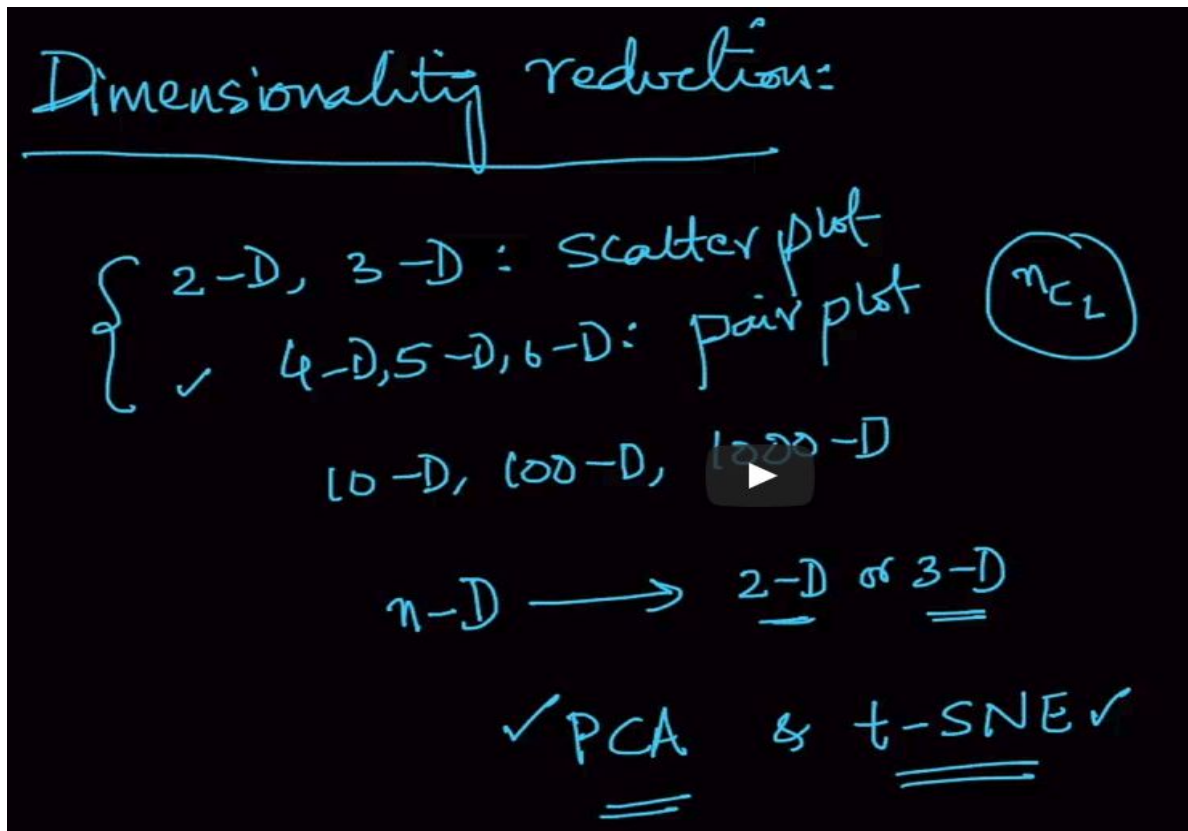 Dimensionality reduction:
2-D, 3-D : scatter plot
✓ 4-D, 5-D, 6-D : pair plot
nC2
10-D, 100-D, 1000-D
n-D → 2-D or 3-D
✓ PCA & t-SNE ✓